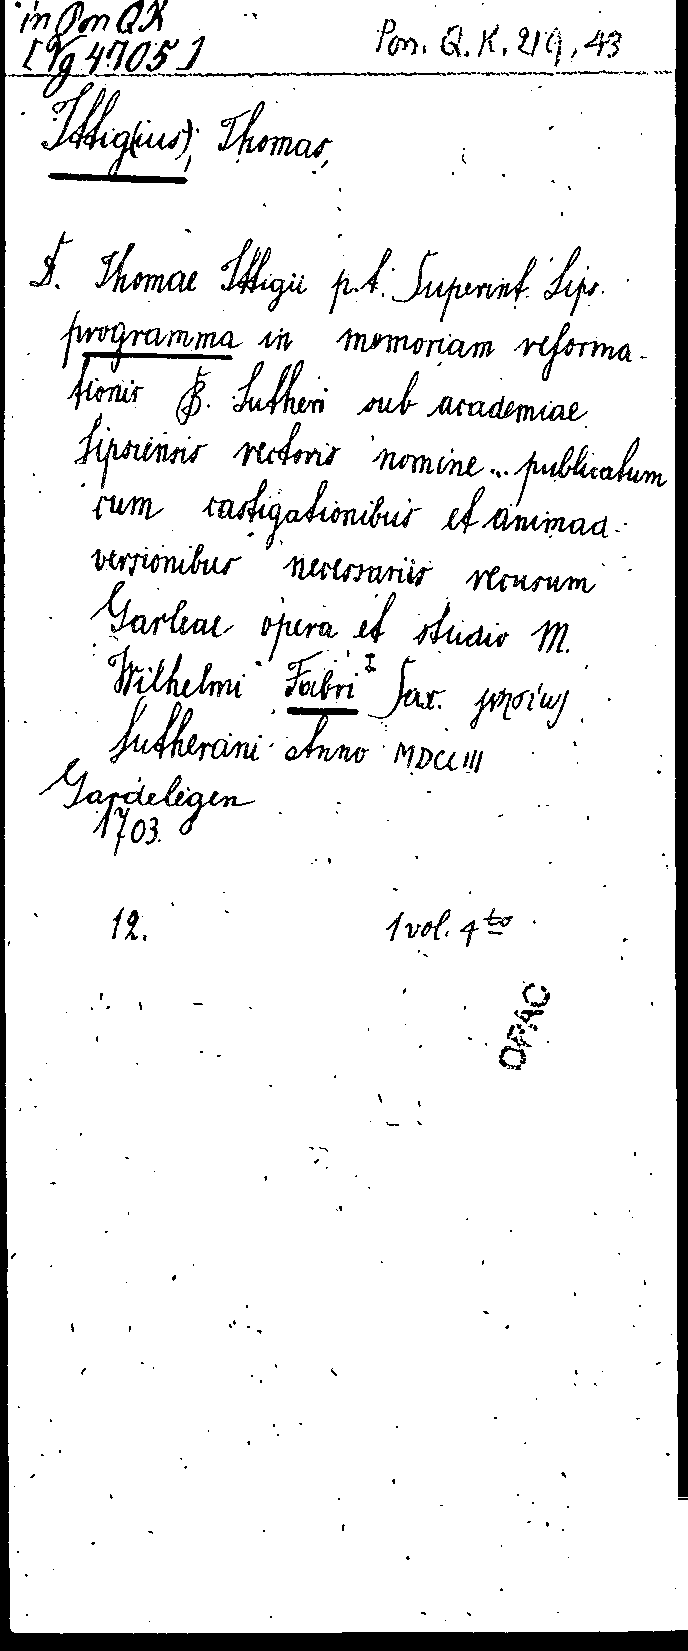 in Pon QK
[Vg 4705]
Pon. Q. K. 219, 43
Ittig(ius), Thomas,
D. Thomae Ittigii p.t. Superint. Lips.
programma in memoriam reforma-
tionis B. Lutheri sub academiae
Lipsiensis rectoris nomine... publicatum
cum castigationibus et animad-
versionibus necessariis recusum
Garleae opera et studio M.
Wilhelmi Fabri I Sax.
Lutherani Anno MDCCIII
Gardelegen
1703.
12. 1 vol. 4to
OPAC